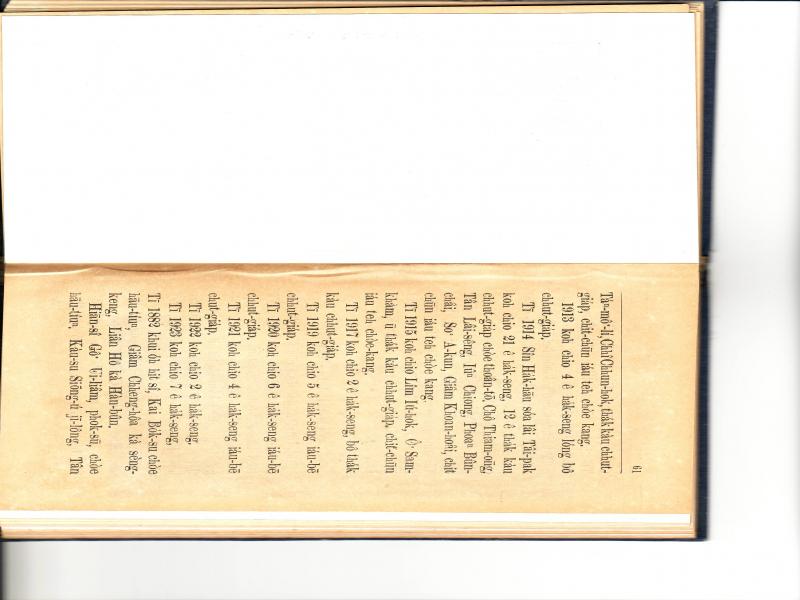 61
Tàⁿ-mô͘-lí, Chhî Chhun-hok, thák kàu chhut-
giáp, chit-chūn iáu teh chòe kang.
1913 koh chio 4 ê hák-seng lóng bô
chhut-giáp.
Tī 1914 Sin Hák-hāu sóa lâi Tâi-pak
koh chio 21 ê hák-seng, 12 ê thák kàu
chhut-giáp chòe thoân-tō,
Tân Lâi-sêng, Iûⁿ Chiong, Phoaⁿ Bûn-
châi, So͘ A-kun, Giâm chit
chūn iáu teh chòe kang
Tī 1915 koh chio Lîm Iú-hok, Ô͘ Sam-
khàm, ū thák kàu chhut-giáp, chit-chūn
iáu teh chòe-kang.
Tī 1917 koh chio 2 ê hák-seng, bô thák
kàu chhut-giáp,
Tī 1919 koh chio 5 ê hák-seng iáu-bē
chhut-giáp,
Tī 1920 koh chio 6 ê hák-seng iáu-bē
chhut-giáp,
Tī 1921 koh chio 4 ê hák-seng iáu-bē
chut-giáp,
Tī 1922 koh chio 2 ê hák-seng,
Tī 1923 koh chio 7 ê hák-seng,
Tī 1882 khui óh hit sî, Kai Bók-su chòe
hāu-tiúⁿ, Giâm Chheng-hôa kà sèng-
keng, Liân Hô kà Hàn-bûn,
Hiān-sî Gô͘ Ui-liâm, phok-sū, chòe
hāu-tiúⁿ, Kàu-su Siōng-tí jī-lông, Tân